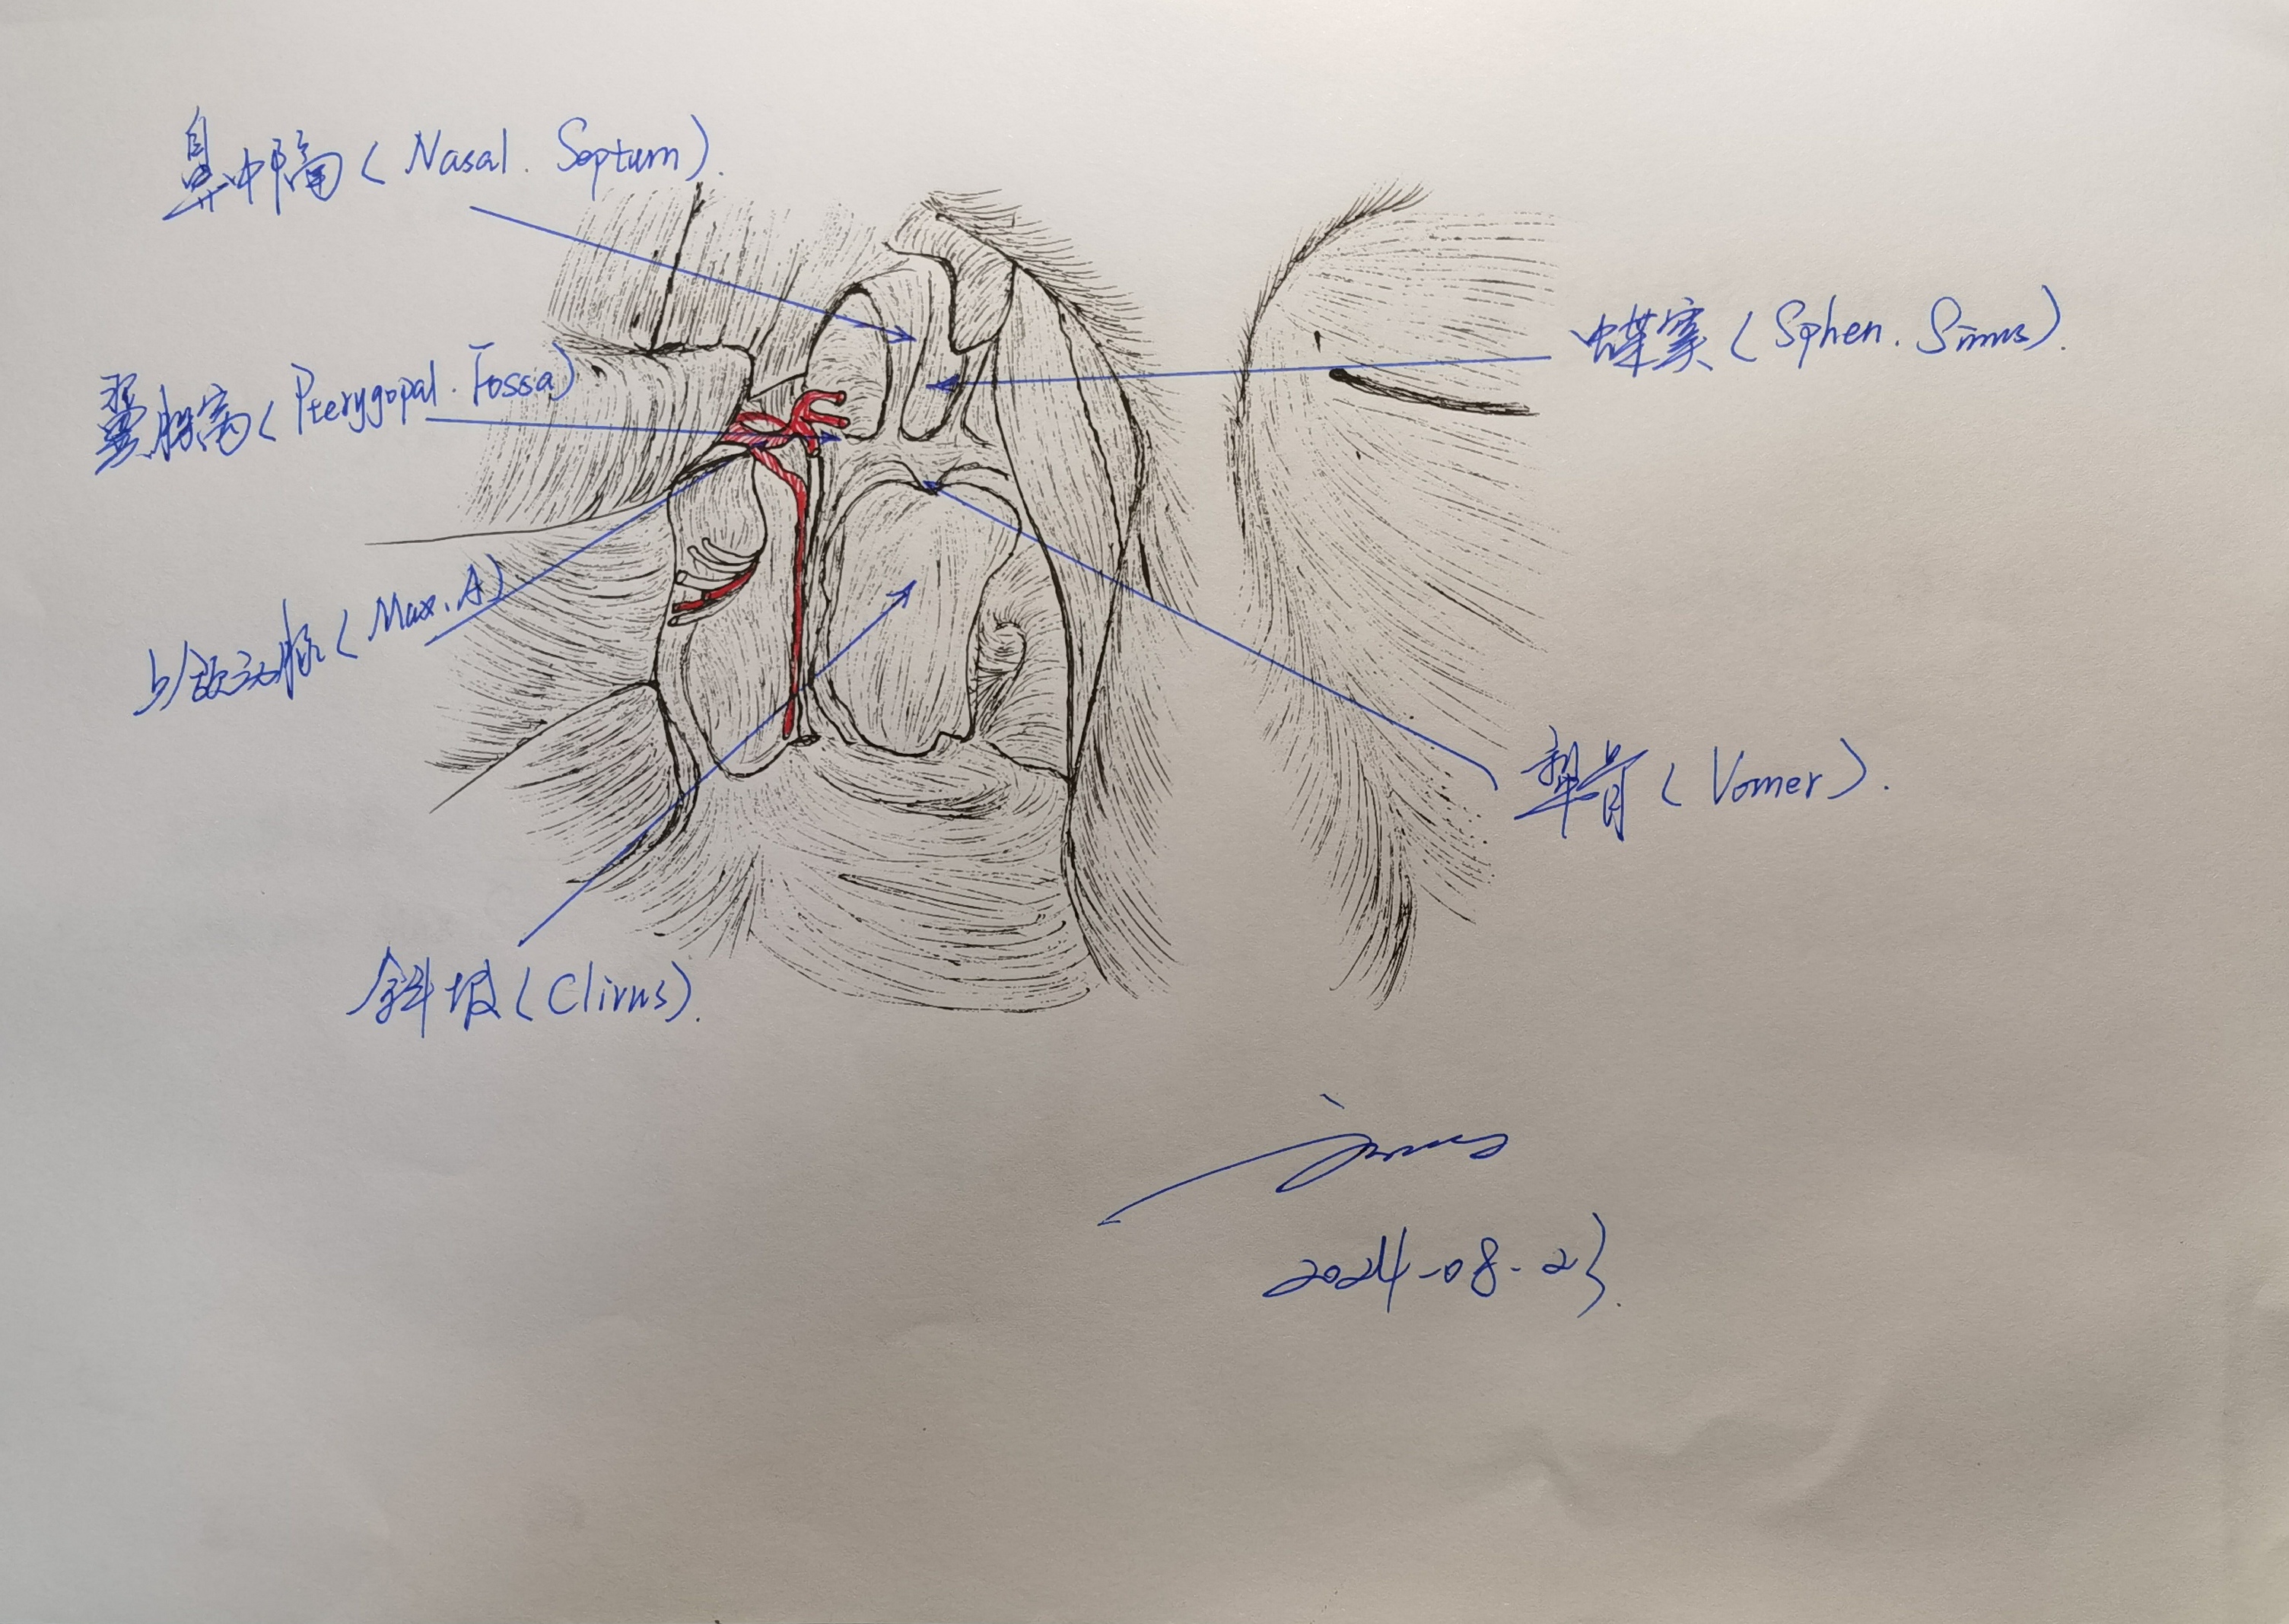 鼻中隔（Nasal. Septum）.
蝶窦（Sphen. Sinus）.
翼腭窝（Pterygopal. Fossa）
上颌动脉（Max. A）
犁骨（Vomer）.
斜坡（Clivus）.
2024-08-23.